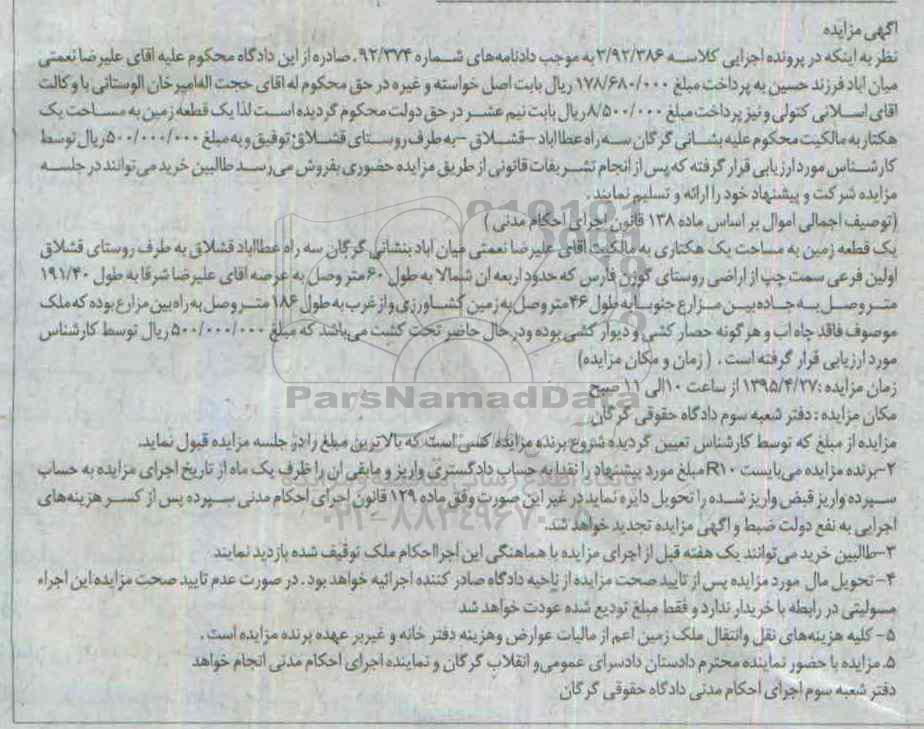 آگهی مزایده
نظر به اینکه در پرونده اجرایی کلاسه ۳/۹۲/۳۸۶ به موجب دادنامه‌های شماره ۹۲/۳۷۴ . صادره از این دادگاه محکوم علیه اقای علیرضا نعمتی
میان اباد فرزند حسین به پرداخت مبلغ ۱۷۸/۶۸۰/۰۰۰ ریال بابت اصل خواسته و غیره در حق محکوم له اقای حجت اله امیرخان الوستانی با وکالت
اقای اسلانی کتولی و نیز پرداخت مبلغ ۸/۵۰۰/۰۰۰ ریال بابت نیم عشر در حق دولت محکوم گردیده است لذا یک قطعه زمین به مساحت یک
هکتار به مالکیت محکوم علیه بشانی گرگان سه راه عطااباد –قشلاق –به طرف روستای قشلاق؛ توقیف و به مبلغ ۵۰۰/۰۰۰/۰۰۰ ریال توسط
کارشناس مورد ارزیابی قرار گرفته که پس از انجام تشریفات قانونی از طریق مزایده حضوری بفروش می‌رسد طالبین خرید می‌توانند در جلسه
مزایده شرکت و پیشنهاد خود را ارائه و تسلیم نمایند .
(توصیف اجمالی اموال بر اساس ماده ۱۳۸ قانون اجرای احکام مدنی )
یک قطعه زمین به مساحت یک هکتاری به مالکیت اقای علیرضا نعمتی میان آباد بنشانی گرگان سه راه عطااباد قشلاق به طرف روستای قشلاق
اولین فرعی سمت چپ از اراضی روستای گوزن فارس که حدود اربعه ان شمالا به طول ۶۰ متر وصل به عرصه اقای علیرضا شرقا به طول ۱۹۱/۴۰
متر وصل به جاده بین مزارع جنوبا به طول ۴۶ متر وصل به زمین کشاورزی و از غرب به طول ۱۸۶ متر وصل به راه بین مزارع بوده که ملک
موصوف فاقد چاه اب و هر گونه حصار کشی و دیوار کشی بوده و در حال حاضر تحت کشت می‌باشند که مبلغ ۵۰۰/۰۰۰/۰۰۰ ریال توسط کارشناس
مورد ارزیابی قرار گرفته است . ( زمان و مکان مزایده)
زمان مزایده :۱۳۹۵/۴/۲۷ از ساعت ۱۰الی ۱۱ صبح
مکان مزایده : دفتر شعبه سوم دادگاه حقوقی گرگان
مزایده از مبلغ که توسط کارشناس تعیین گردیده شروع برنده مزایده کسی است که بالاترین مبلغ را در جلسه مزایده قبول نماید.
۲-برنده مزایده می‌بایست R۱۰ مبلغ مورد پیشنهاد را نقدا به حساب دادگستری واریز و مابقی ان را ظرف یک ماه از تاریخ اجرای مزایده به حساب
سپرده واریز قبض واریز شده را تحویل دایره نماید در غیر این صورت وفق ماده ۱۲۹ قانون اجرای احکام مدنی سپرده پس از کسر هزینه‌های
اجرایی به نفع دولت ضبط و اگهی مزایده تجدید خواهد شد.
۳-طالبین خرید می‌توانند یک هفته قبل از اجرای مزایده با هماهنگی این اجرااحکام ملک توقیف شده بازدید نمایند
۴- تحویل مال مورد مزایده پس از تایید صحت مزایده از ناحیه دادگاه صادر کننده اجرائیه خواهد بود . در صورت عدم تایید صحت مزایده این اجراء
مسولیتی در رابطه با خریدار ندارد و فقط مبلغ تودیع شده عودت خواهد شد
۵- کلیه هزینه‌های نقل وانتقال ملک زمین اعم از مالیات عوارض وهزینه دفتر خانه و غیربر عهده برنده مزایده است .
۵. مزایده با حضور نماینده محترم دادستان دادسرای عمومی و انقلاب گرگان و نماینده اجرای احکام مدنی انجام خواهد
دفتر شعبه سوم اجرای احکام مدنی دادگاه حقوقی گرگان
ParsNamadData
۰۲۱-۸۸۳۴۹۶۷۰